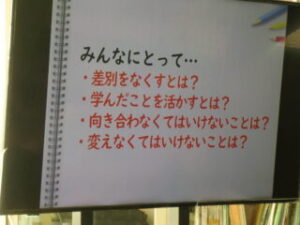 みんなにとって…
・差別をなくすとは？
・学んだことを活かすとは？
・向き合わなくてはいけないことは？
・変えなくてはいけないことは？